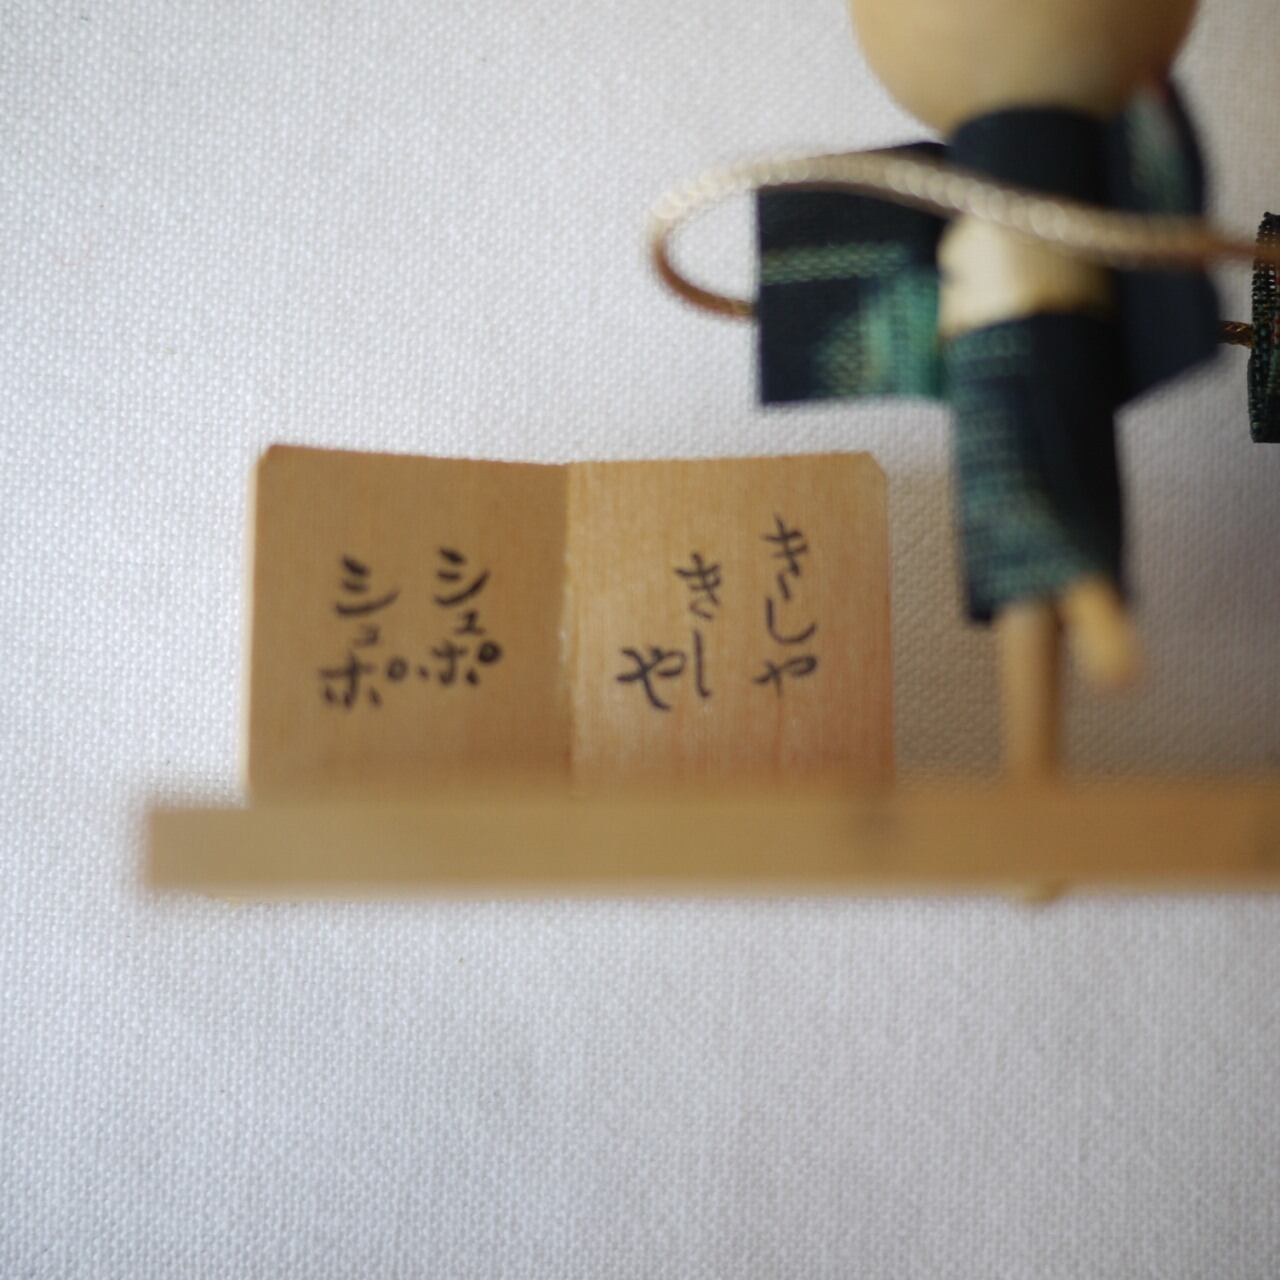 きしや
きしや
シュポ
シュポ